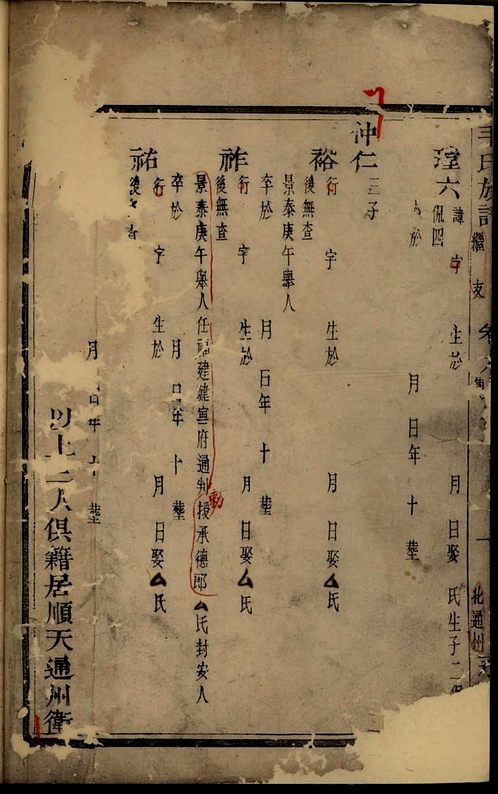 氏族 繼支 北通州
六 諱 字 生於 月 日娶 氏生子二
侃四
於 月 日年 十 葬
沖仁 三子
裕 行 字 生於 月 日娶厶氏
後無查
景泰庚午舉人
卒於 月 日年 十 葬
祚 行 字 生於 月 日娶厶氏
後無查
景泰庚午舉人任福建建寧府通判勅授承德郎厶氏封安人
卒於 月 日年 十 葬
祐 行 字 生於 月 日娶厶氏
後
月 日年 十 葬
以上二人俱籍居順天通州衛